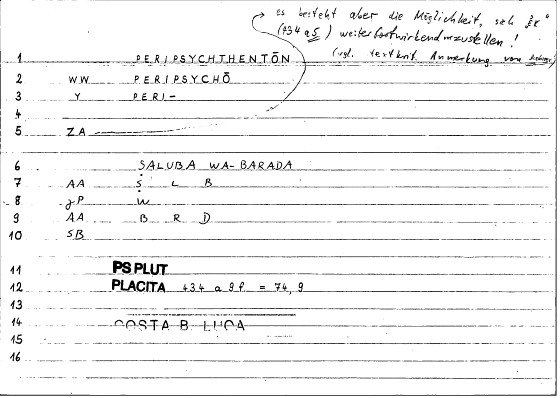 es besteht aber die Möglichkeit,
(434 a5) weiterfortwirkend
(vgl. textkrit. Anmerkung
1 PERIPSYCHTHENTŌN
2 WW PERIPSYCHŌ
3 Y PERI-
4
5 ZA
6 ṢALUBA WA-BARADA
7 AA Ṣ L B
8 W
9 AA B R D
10 SB
11 PS PLUT
12 PLACITA 434 a 9f. = 74,9
13
14 COSTA B. LUCA
15
16